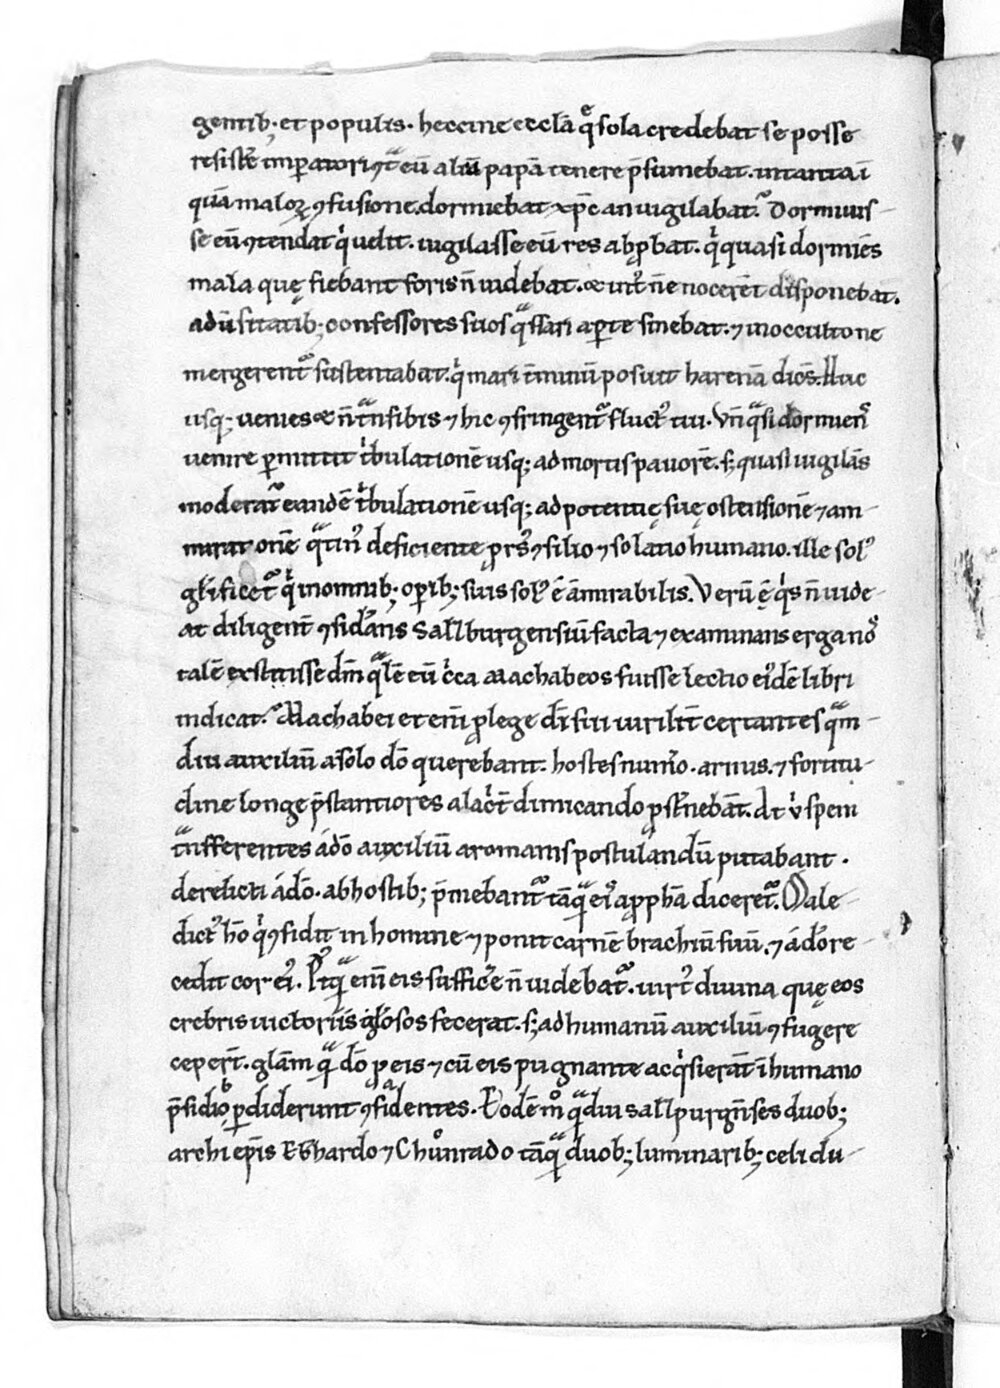 gentib; et populis. heccine eccła q̄ sola credebat se posse
resist̄e imperatori ⁊ ꝯt̄ eū aliū papā tenere p̄sumebat. in tanta ī
quā maloꝝ ꝯfusione. dormiebat xp̄c an uigilabat. Dormis-
se eū ꝯtendat qͥ uelit. uigilasse eū res ap̄bat. qͥ quasi dormiēs
mala quę fiebant foris n̄ uidebat. & intꝰ ne nocerēt disponebat.
aduˢitatib; confessores suos qᵃssari aꝑte sinebat. ⁊ in occulto ne
mergerentᷣ sustentabat. qͥ mari t̄minū posuit harenā dicēs. Huc
usq; uenies & n̄ tᵃnsibis ⁊ hic ꝯfringentᷣ fluctꝰ tui. Vn̄ qᵃsi dormienˢ
uenire ꝑmittit tͥbulationē usq; ad mortis pauorē. s; quasi uigilās
moderatᷣ eandē tͥbulationē usq; ad potentię suę ostensionē ⁊ am-
mirationē qᵃtinꝰ deficiente ꝓrsꝰ ꝯsilio ⁊ solatio humano. ille solꝰ
glͥficetᷣ qͥ in omnib; oꝑib; suis solꝰ ē āmirabilis. Verū ē qͥs n̄ uide-
at diligent̄ ꝯsidᵃns Salburgensiū facta ⁊ examinans erga noˢ
talē exstitisse dm̄ qᵃlē eū cͥca Machabeos fuisse lectio eiꝰdē libri
indicat. Machabei etenī ꝓ lege dī sui uirilit̄ certantes qᵃm-
diu auxiliū a solo dō querebant. hostes numͦo. armis. ⁊ fortitu-
dine longe p̄stantiores alacͥt̄ dimicando ꝓst̄nebāt. At u̇ spem
tᵃnsferentes a dō auxiliū a romanis postulandū putabant.
derelicti a dō. ab hostib; p̄mebantᷣ tāqᵃ eiˢ a ꝓphā diceretᷣ. Male-
dictꝰ hō qͥ ꝯfidit in homine ⁊ ponit carnē brachiū suū. ⁊ a dō re-
cedit cor eiꝰ. Pꝰqᵃ enī eis suffic̄e n̄ uidebatᷣ. uirtꝰ diuina quę eos
crebris uictoriis glͦsos fecerat. s; ad humanū auxiliū ꝯfugere
ceper̄t. glam qᵃ dō ꝓ eis ⁊ cū eis pugnante acqͥsierāt ī humano
p̄sidio ꝑdiderunt ꝯfidentes. Eodē mͦ qᵃdiu salpurgn̄ses duob;
archiep̄is Ebhardo ⁊ Chůnrado tāqᵃ duob; luminarib; celi du-